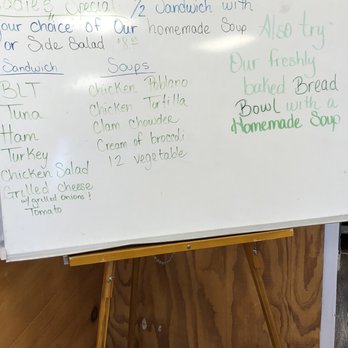 Special 1/2 Sandwich with
your choice of Our homemade Soup
or Side Salad
Sandwich
BLT
Tuna
Ham
Turkey
Chicken Salad
Grilled cheese
w/ grilled onions &
Tomato
Soups
Chicken Poblano
Chicken Tortilla
Clam chowder
Cream of broccoli
12 vegetable
Also try
Our freshly
baked Bread
Bowl with a
Homemade Soup